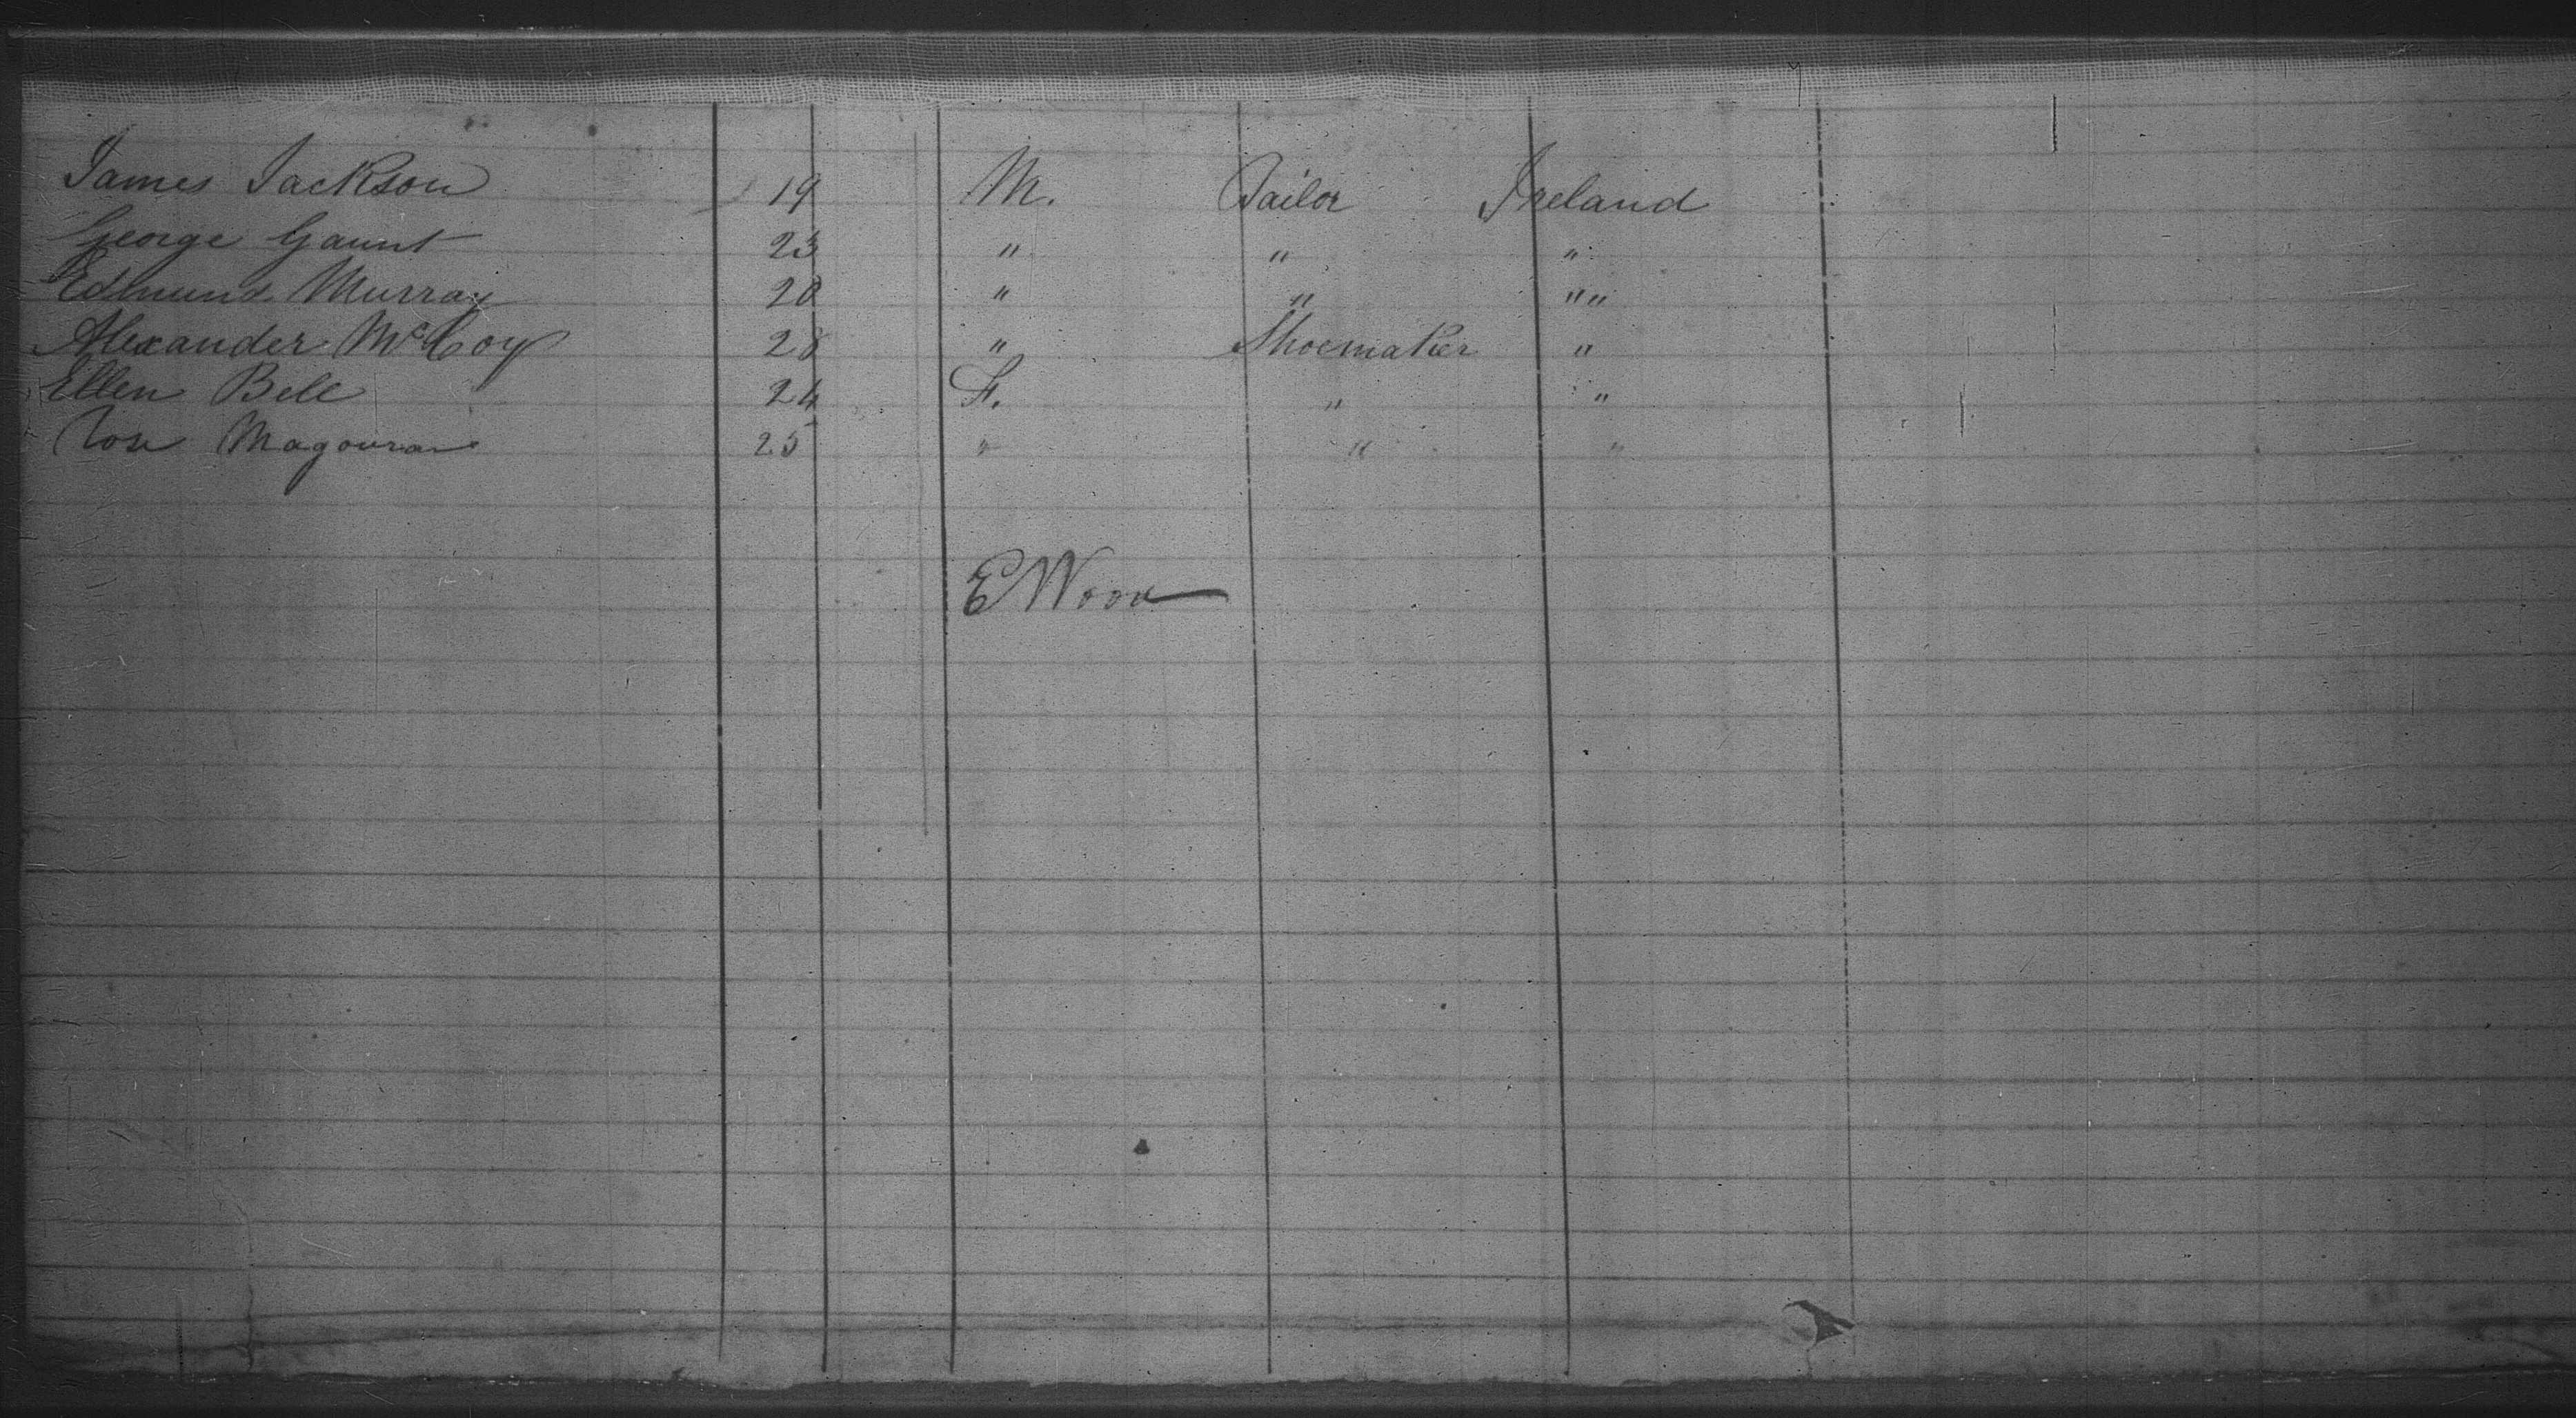 James Jackson 19 M. Tailor Ireland
George Gaunt 23 " " "
Edmund Murray 20 " " " "
Alexander McCoy 28 " Shoemaker "
Ellen Bell 24 F. " "
Rose Magouran 25 " " "
E Wood